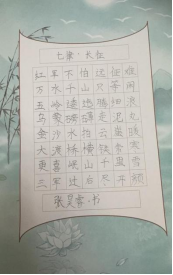 七律·长征
红军不怕远征难
万水千山只等闲
五岭逶迤腾细浪
乌蒙磅礴走泥丸
金沙水拍云崖暖
大渡桥横铁索寒
更喜岷山千里雪
三军过后尽开颜
张 书